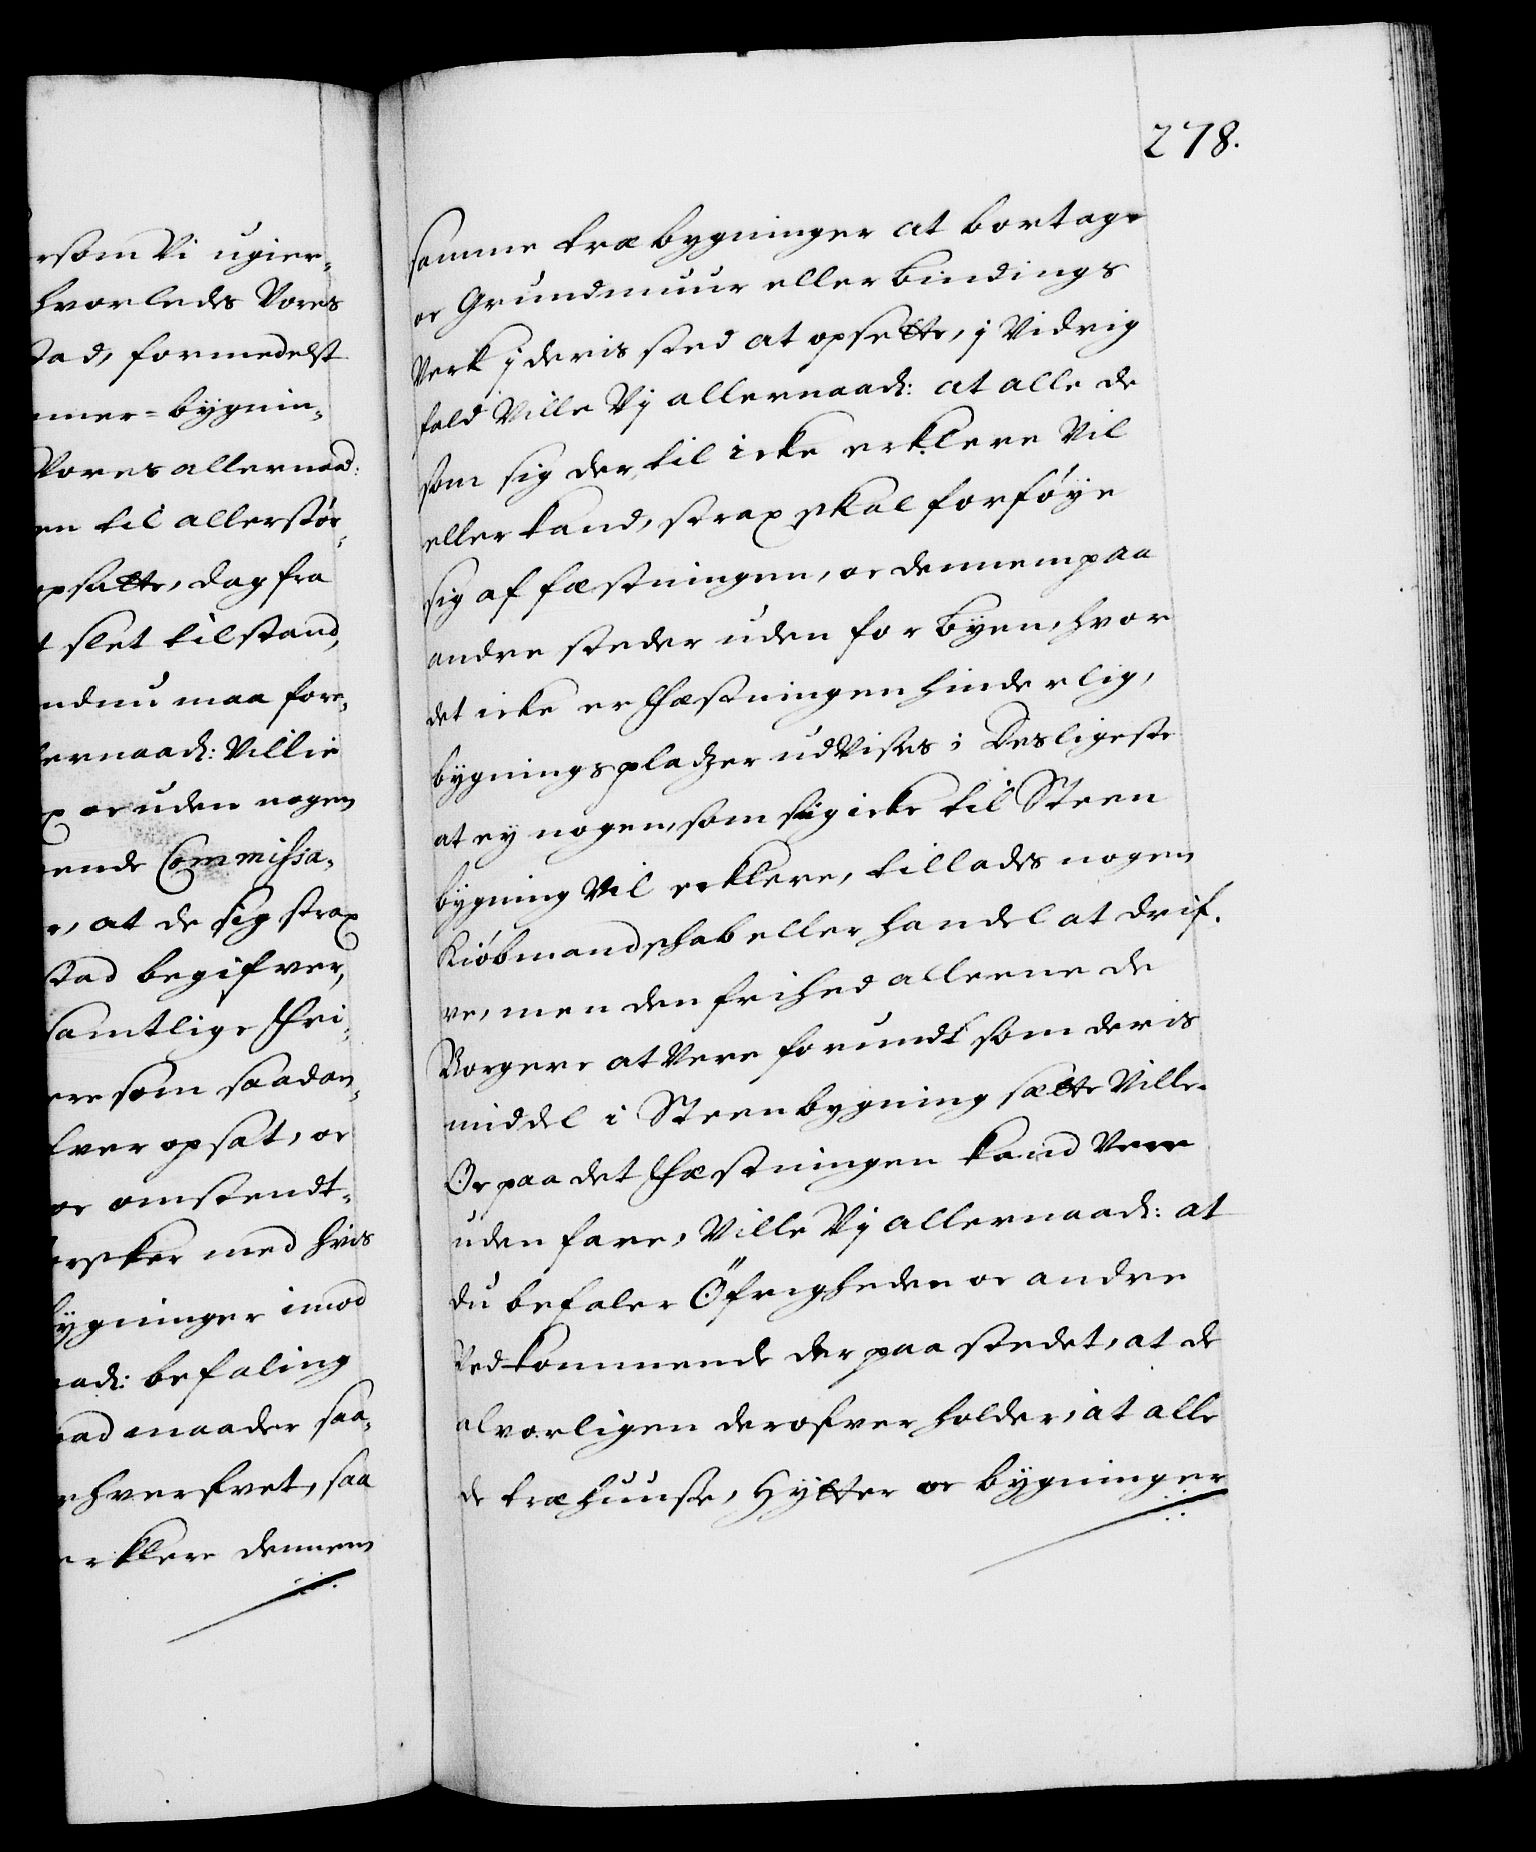 rsom Vi ugier-
hvorledes Vores
stad, formedelst
mmer=bygnin-
Vores allernaad:
en til allerstör-
opsatte, dag fra
t slet tilstand,
endnu maa fore-
lernaad: Villie
x oc uden nogen
ende Commissa-
r, at de sig strax
stad begifver,
samtlige Fri-
ere som saadan-
lver opsat, oc
oc omstendt-
ersker med hvis
bygninger imod
naad: befaling
haad maader saa-
erhverfvet, saa
erklere dennem
278.
samme træbygninger at borttage
oc Grundmuur eller Bindings
Verk j deris sted at opsette, j Vidrig
fald Ville Vj allernaad: at alle de
som sig der til icke erklere Vil
eller kand, strax skal forföye
sig af fæstningen, oc dennem paa
andre steder uden for Byen, hvor
det icke er Fæstningen hinderlig,
bygnings pladzer udvises; Desligeste
at ey nogen, som sig icke til Steen
bygning Vil erklere, tillades nogen
Kiöbmandskab eller handel at drif-
ve, men den frihed alleene de
Borgere at Vere forundt som deris
middel i Steenbygning sætte Ville.
Oc paa det Fæstningen kand Vere
uden fare, Ville Vj allernaad: at
du befaler Öfrigheden oc andre
Vedkommende der paa stedet, at de
alvorligen derofver holder, at alle
de træhuuse, Hytter oc bygninger